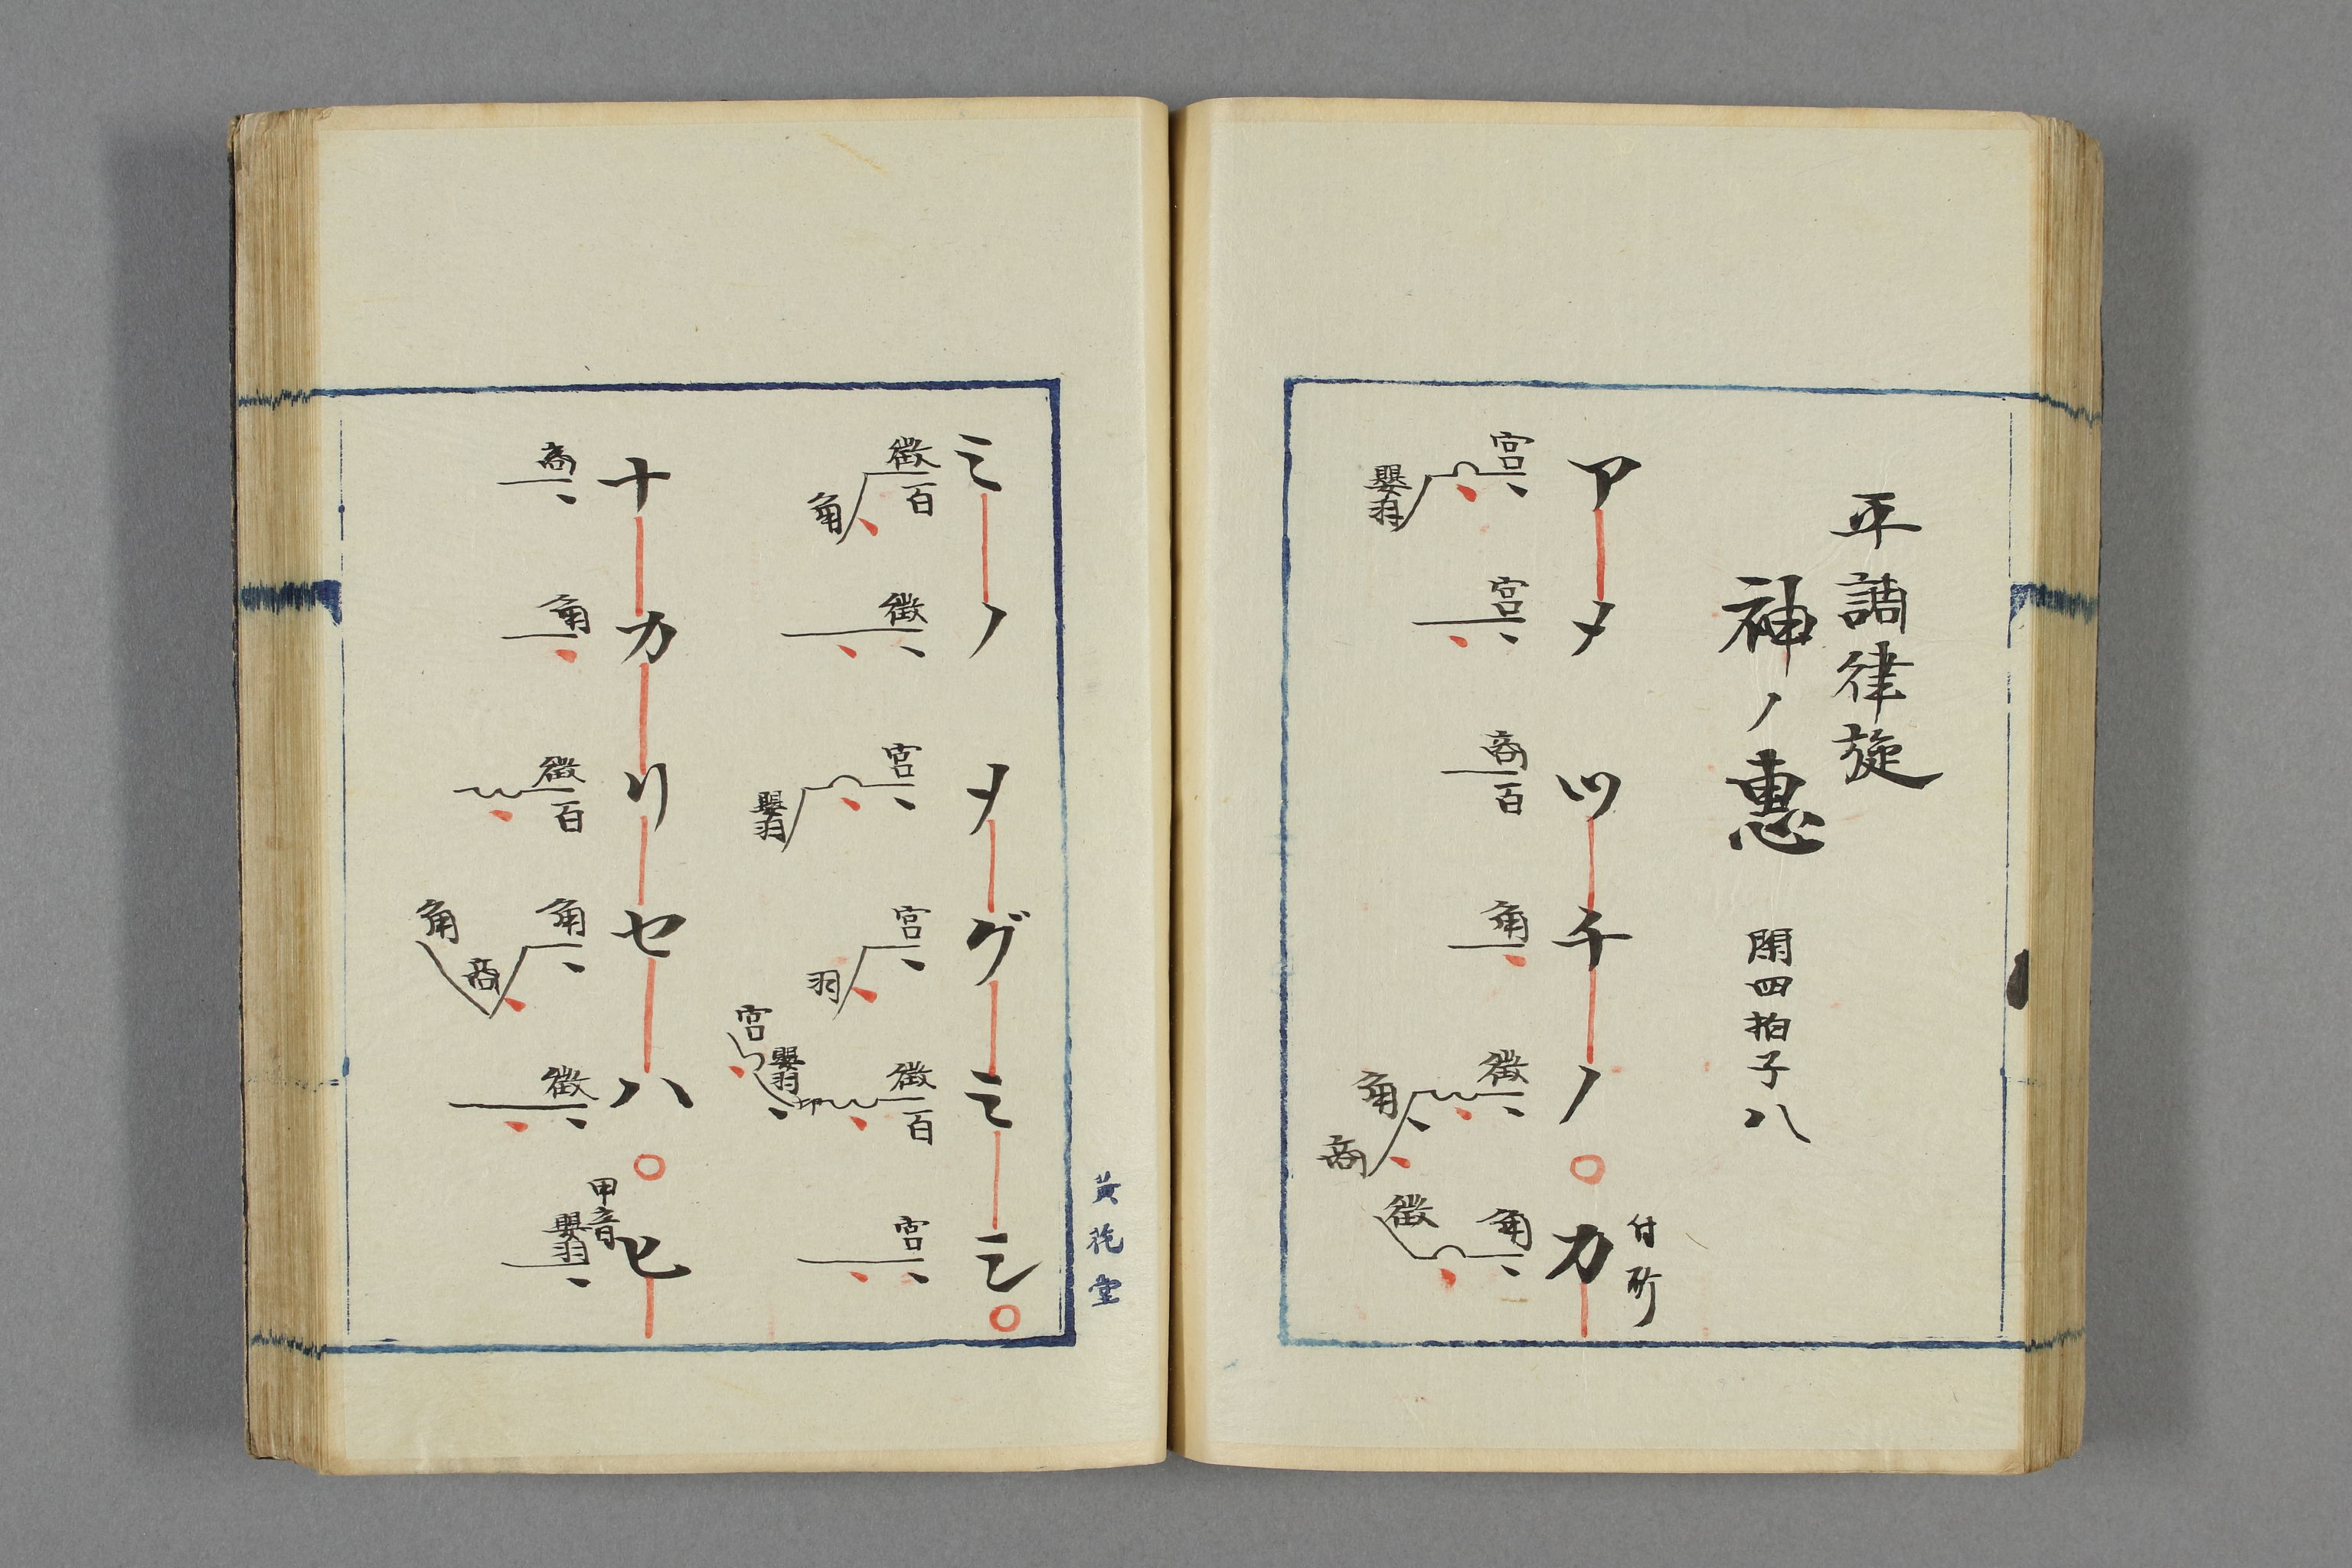 平調律旋
神ノ惠 閑四拍子八
付所
アメツチノ○カ
宮 嬰羽 宮 商 百 角 徴 角 商 角 徴
黃花堂
ミノヲグミミ○
徴 百 角 徴 宮 嬰羽 宮 羽 徴 百 嬰羽 宮 宮
ナカリセハ○ヒ
甲音
商 角 徴 百 角 商 角 徴 嬰羽